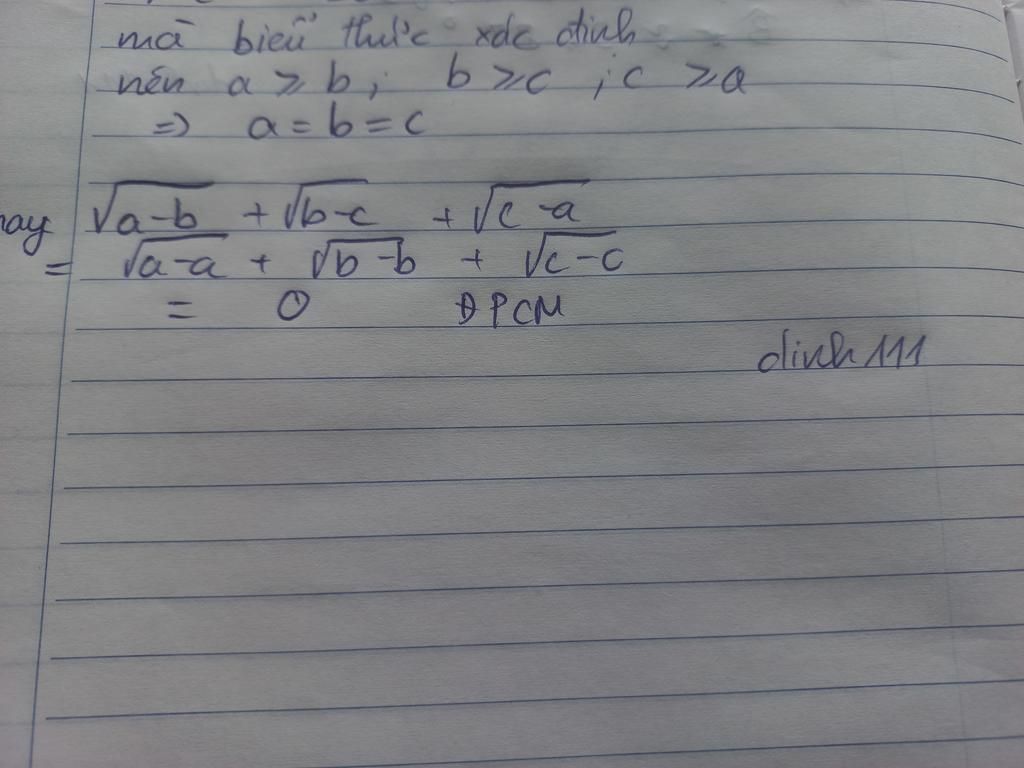 mà biểu thức xác định
nên a ≥ b; b ≥ c ; c ≥ a
=> a = b = c
hay √a-b + √b-c + √c-a
= √a-a + √b-b + √c-c
= 0 ĐPCM
dinh 111